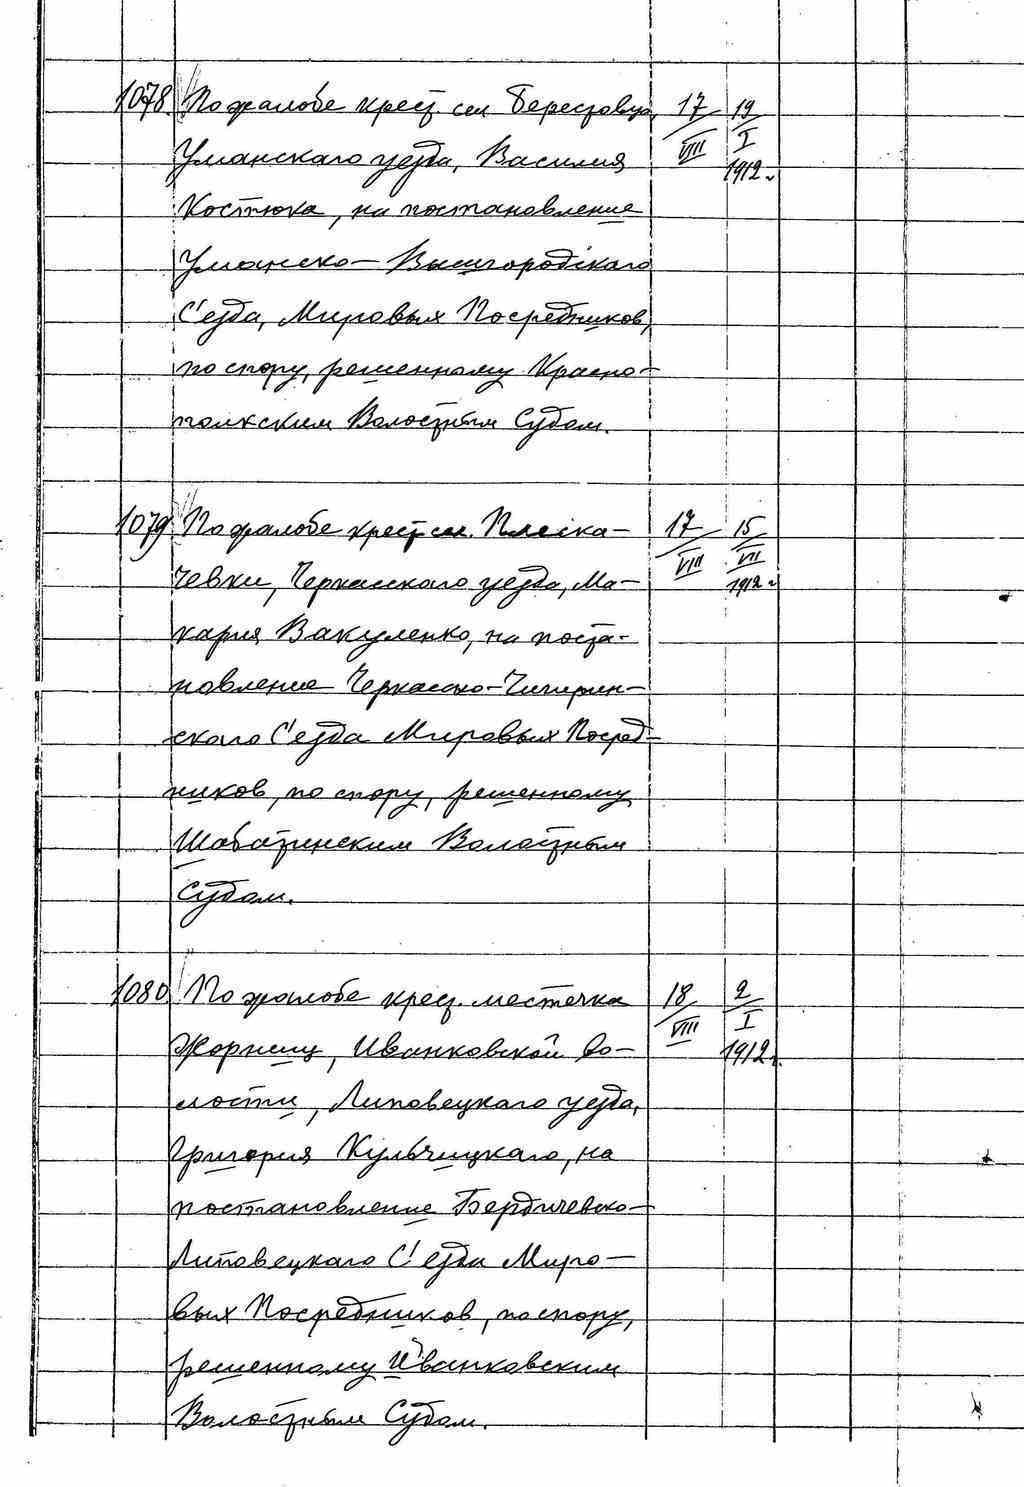 1078. По жалобе крест. сел. Берестовца, 17/VIII 19/I
Уманскаго уезда, Василия 1912 г.
Костюка, на постановление
Уманско-Вышгородскаго
С'езда, Мировых Посредников,
по спору, решенному Красно-
полкским Волостным Судом.
1079. По жалобе крест. сел. Плеска- 17/VIII 15/VII
чевки, Черкасскаго уезда, Ма- 1912 г.
кария Вакуленко, на поста-
новление Черкасско-Чигирин-
скаго С'езда Мировых Посред-
ников, по спору, решенному
Шабатинским Волостным
Судом.
1080. По жалобе крест. местечка 18/VIII 2/I
Жорнищ, Иванковской во- 1912 г.
лости, Липовецкаго уезда,
Григория Кульчицкаго, на
постановление Бердичевско-
Липовецкаго С'езда Миро-
вых Посредников, по спору,
решенному Иванковским
Волостным Судом.